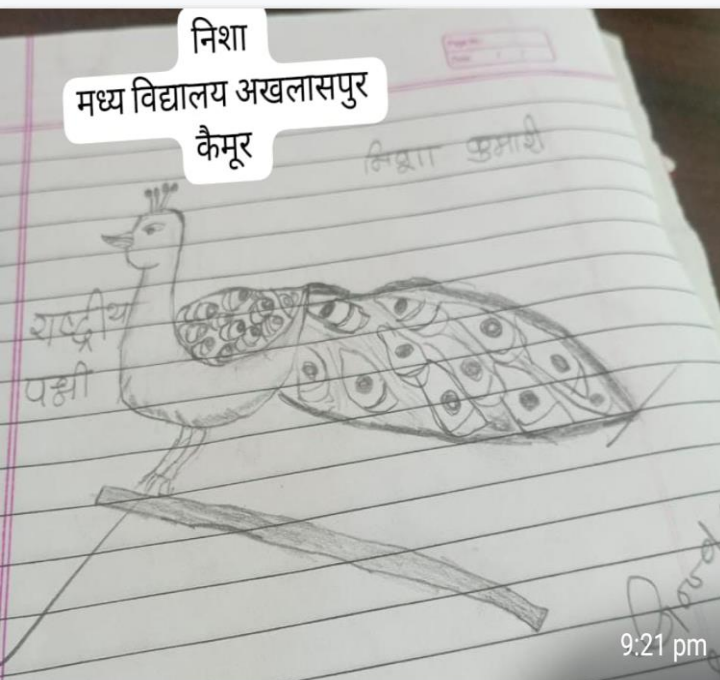 निशा
मध्य विद्यालय अखलासपुर
कैमूर
निशा कुमारी
राष्ट्रीय
पक्षी
Good
9:21 pm